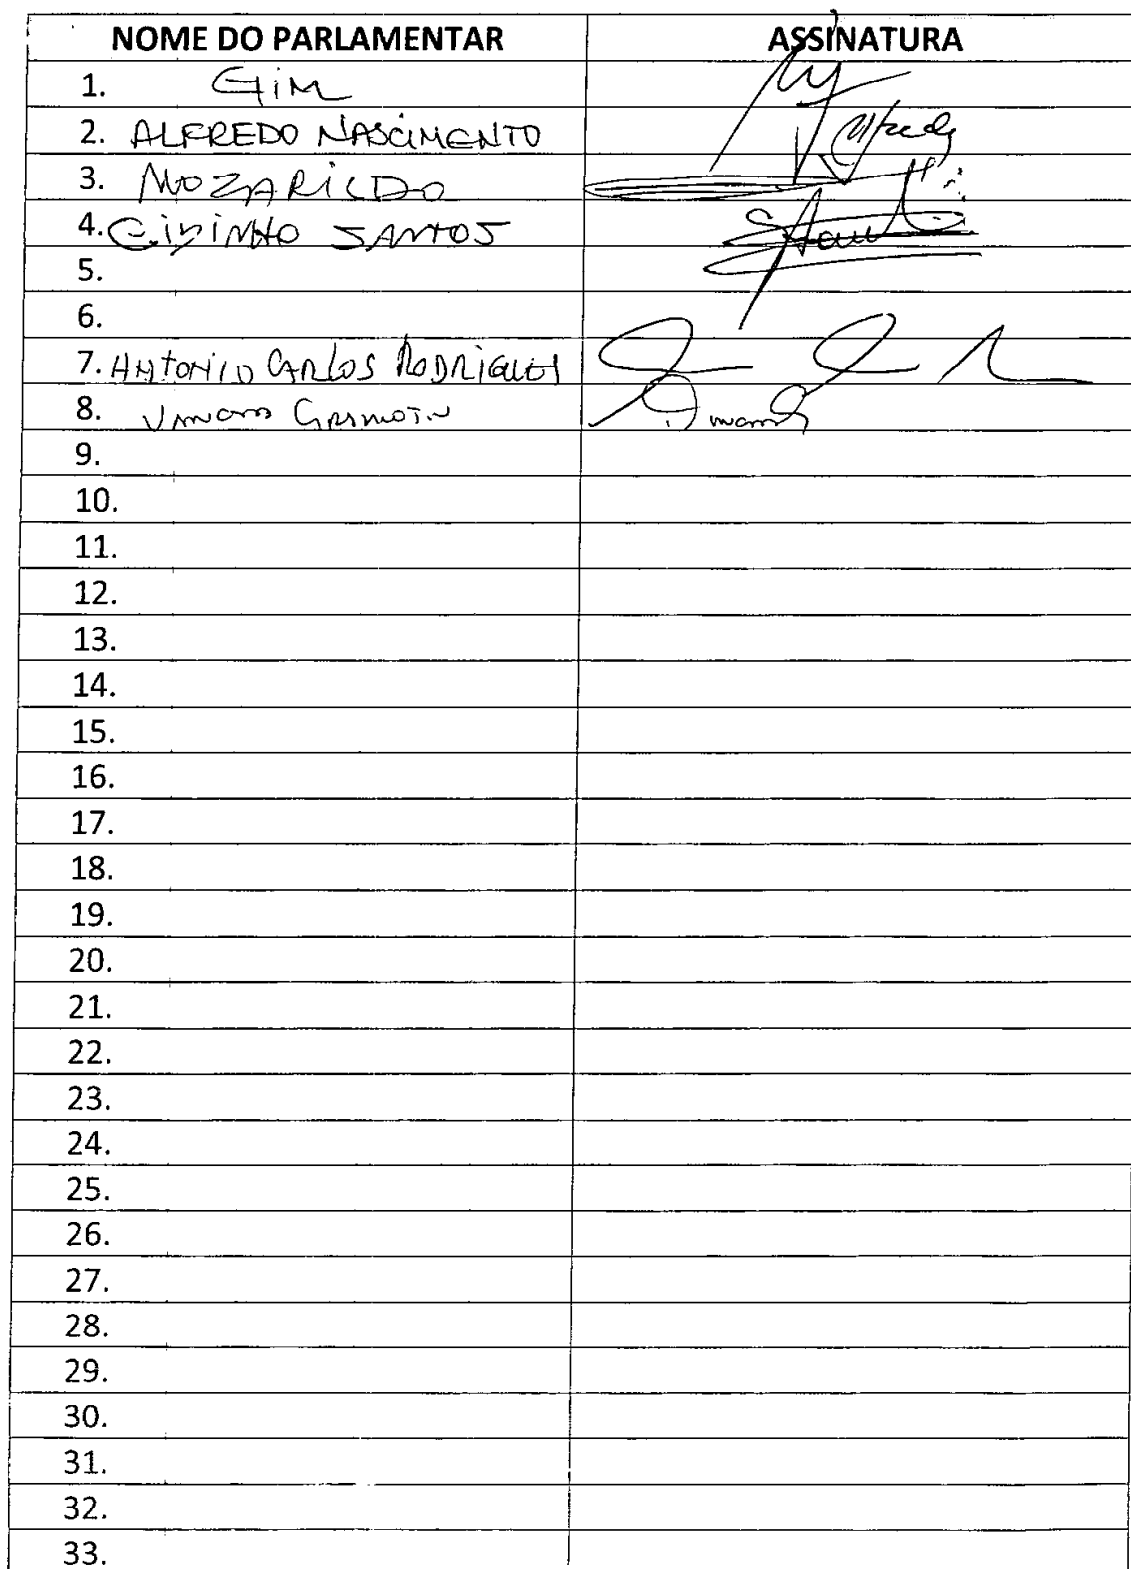 NOME DO PARLAMENTAR ASSINATURA
1. Gim
2. ALFREDO NASCIMENTO Alfredo
3. MOZARILDO
4. SANTOS
5.
6.
7. ANTONIO CARLOS RODRIGUES
8.
9.
10.
11.
12.
13.
14.
15.
16.
17.
18.
19.
20.
21.
22.
23.
24.
25.
26.
27.
28.
29.
30.
31.
32.
33.